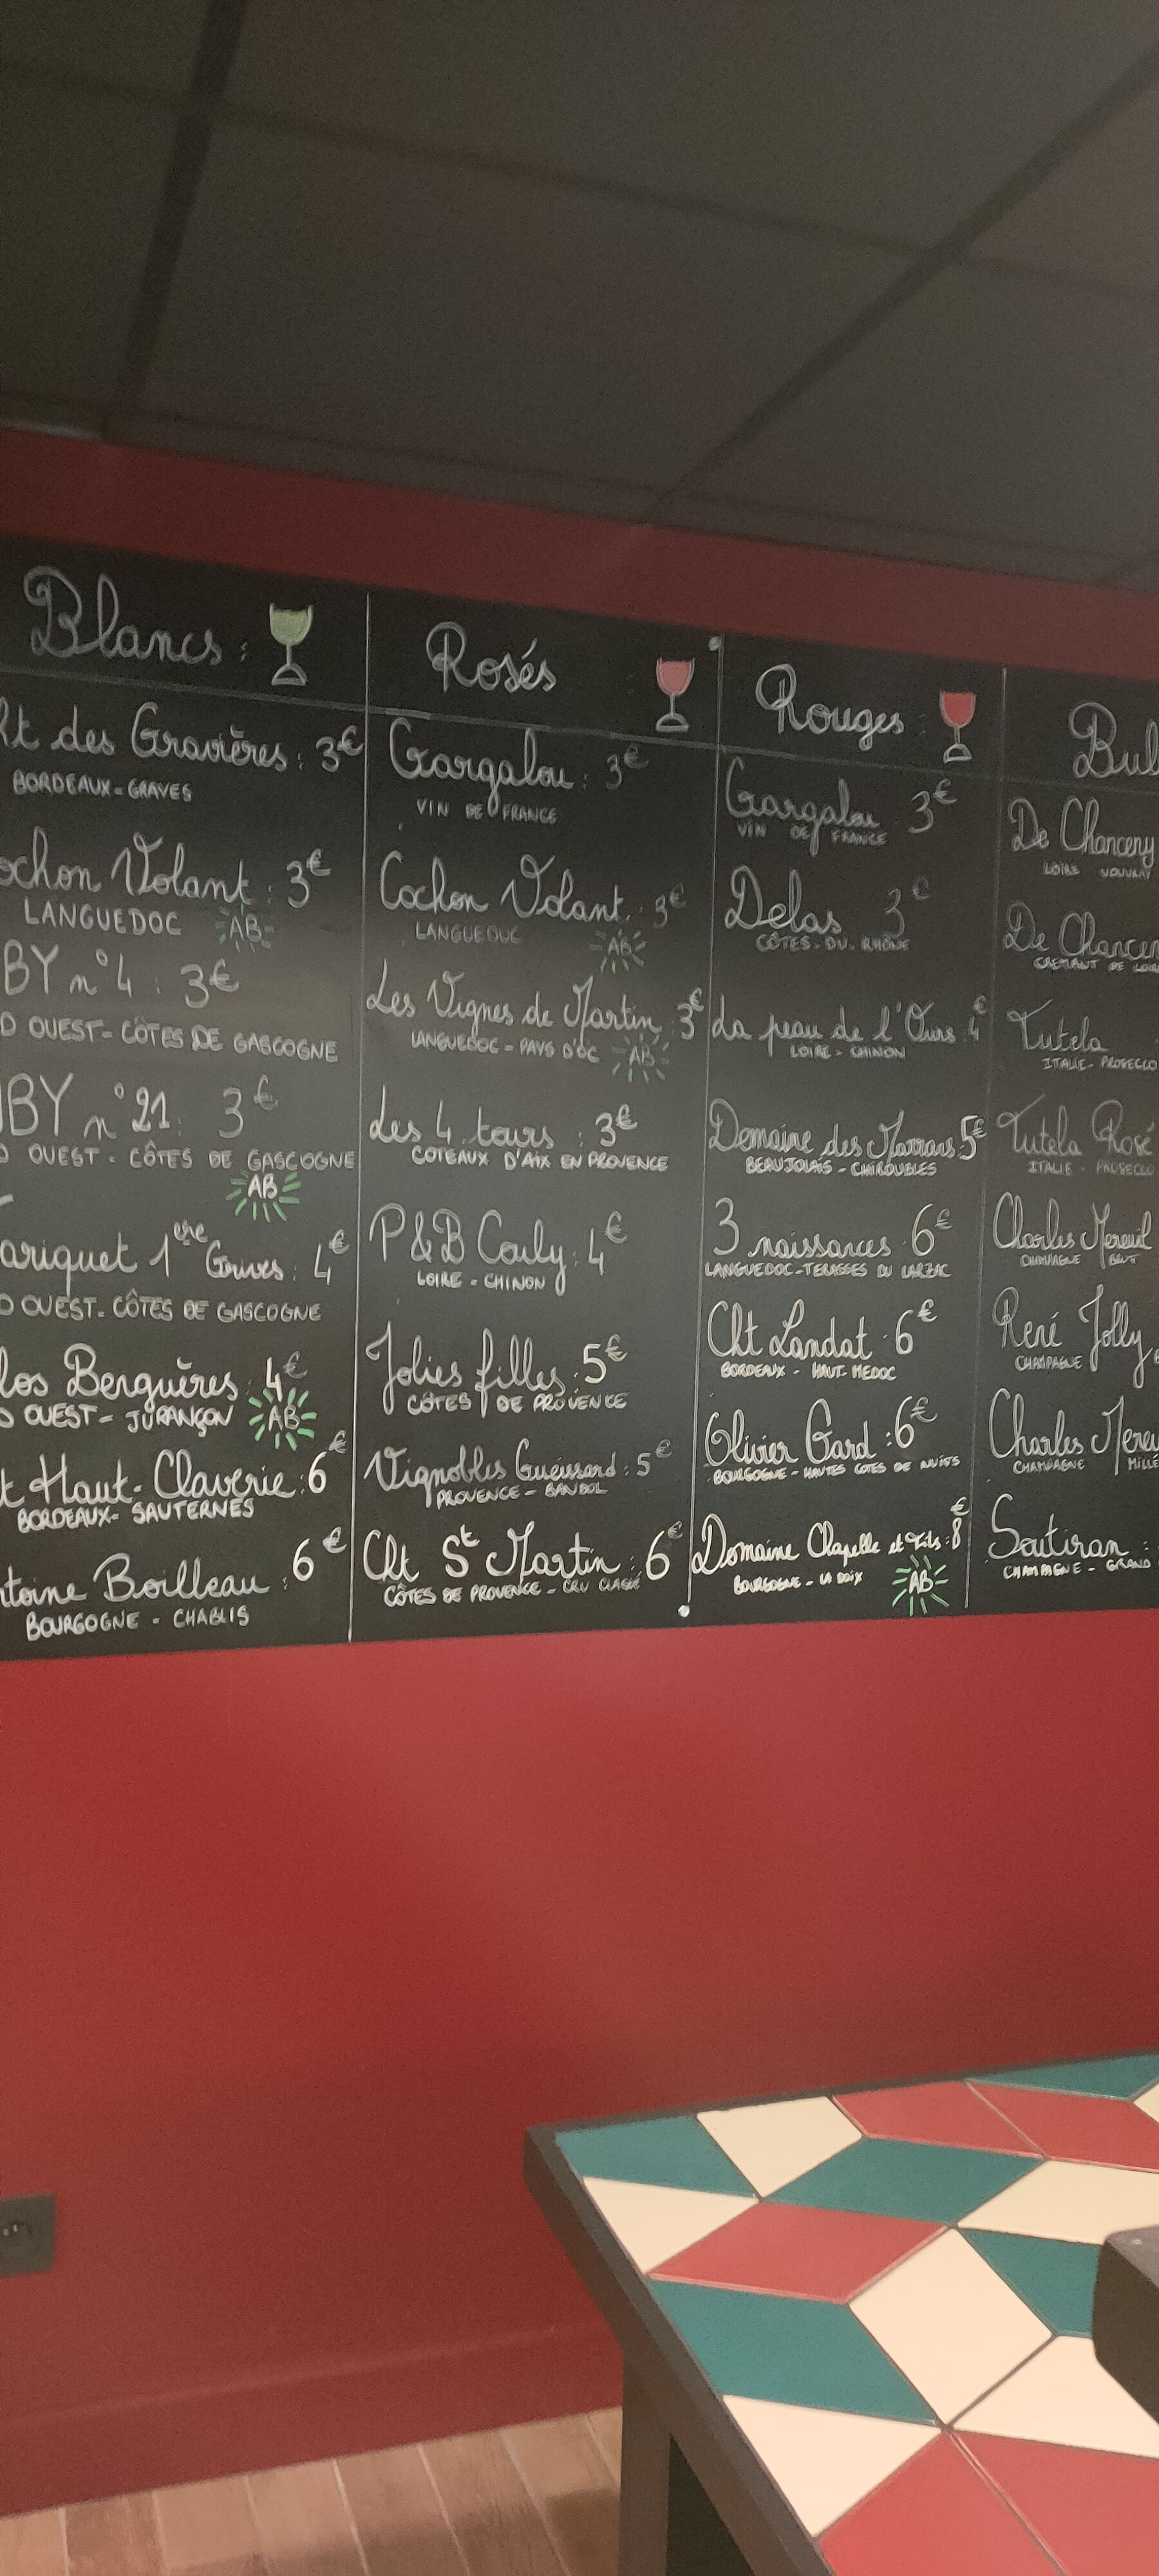 Blancs :
lt des Gravières : 3€
BORDEAUX - GRAVES
ochon Volant : 3€
LANGUEDOC AB
BY n°4 : 3€
D OUEST - CÔTES DE GASCOGNE
BY n°21 : 3€
D OUEST - CÔTES DE GASCOGNE
AB
ariquet 1ère Grives : 4€
D OUEST - CÔTES DE GASCOGNE
los Berguères : 4€
D OUEST - JURANÇON AB
t Haut-Claverie : 6€
BORDEAUX - SAUTERNES
toine Boilleau : 6€
BOURGOGNE - CHABLIS
Rosés :
Gargalou : 3€
VIN DE FRANCE
Cochon Volant : 3€
LANGUEDOC AB
Les Vignes de Martin 3€
LANGUEDOC - PAYS D'OC AB
Les 4 tours : 3€
COTEAUX D'AIX EN PROVENCE
P&B Couly : 4€
LOIRE - CHINON
Jolies filles : 5€
CÔTES DE PROVENCE
Vignobles Gueissard : 5€
PROVENCE - BANDOL
Cht St Martin : 6€
CÔTES DE PROVENCE - CRU CLASSÉ
Rouges :
Gargalou 3€
VIN DE FRANCE
Delas 3€
CÔTES-DU-RHÔNE
La peau de l'Ours 4€
LOIRE - CHINON
Domaine des Marrans 5€
BEAUJOLAIS - CHIROUBLES
3 naissances 6€
LANGUEDOC - TERASSES DU LARZAC
Cht Landat 6€
BORDEAUX - HAUT-MEDOC
Olivier Gard : 6€
BOURGOGNE - HAUTES COTES DE NUITS
Domaine Chapelle et Fils : 8€
BOURGOGNE - LA DOIX AB
Bul
De Chanceny
LOIRE VOUVRAY
De Chancen
CREMANT DE LOIR
Tutela
ITALIE - PROSECCO
Tutela Rosé
ITALIE - PROSECCO
Charles Mereuil
CHAMPAGNE BRUT
René Jolly
CHAMPAGNE
Charles Mereu
CHAMPAGNE MILLÉ
Soutiran :
CHAMPAGNE - GRAND